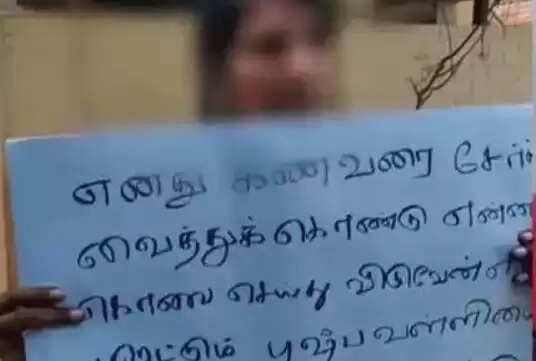 எனது கணவரை சேர்
வைத்துக் கொண்டு என்னை
கொலை செய்து விடுவேன்
மிரட்டும் புஷ்பவள்ளியை